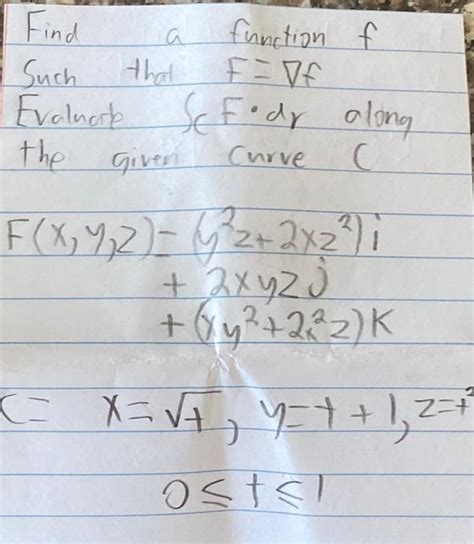 Find a function f
Such that F = ∇f
Evaluate ∫c F • dr along
the given curve C
F(x,y,z) = (y²z + 2xz²)i
+ 2xyzj
+ (xy² + 2x²z)K
C = x = √t, y = t + 1, z = t²
0 ≤ t ≤ 1